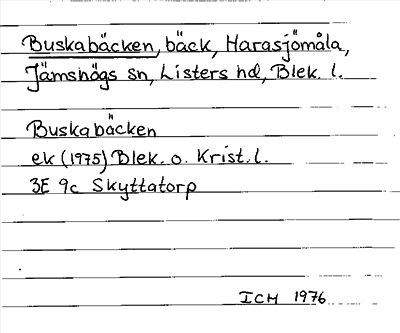 Buskabäcken, bäck, Harasjömåla,
Jämshögs sn, Listers hd, Blek. l.
Buskabäcken
ek (1975) Blek. o. Krist. l.
3E 9c Skyttatorp
ICM 1976